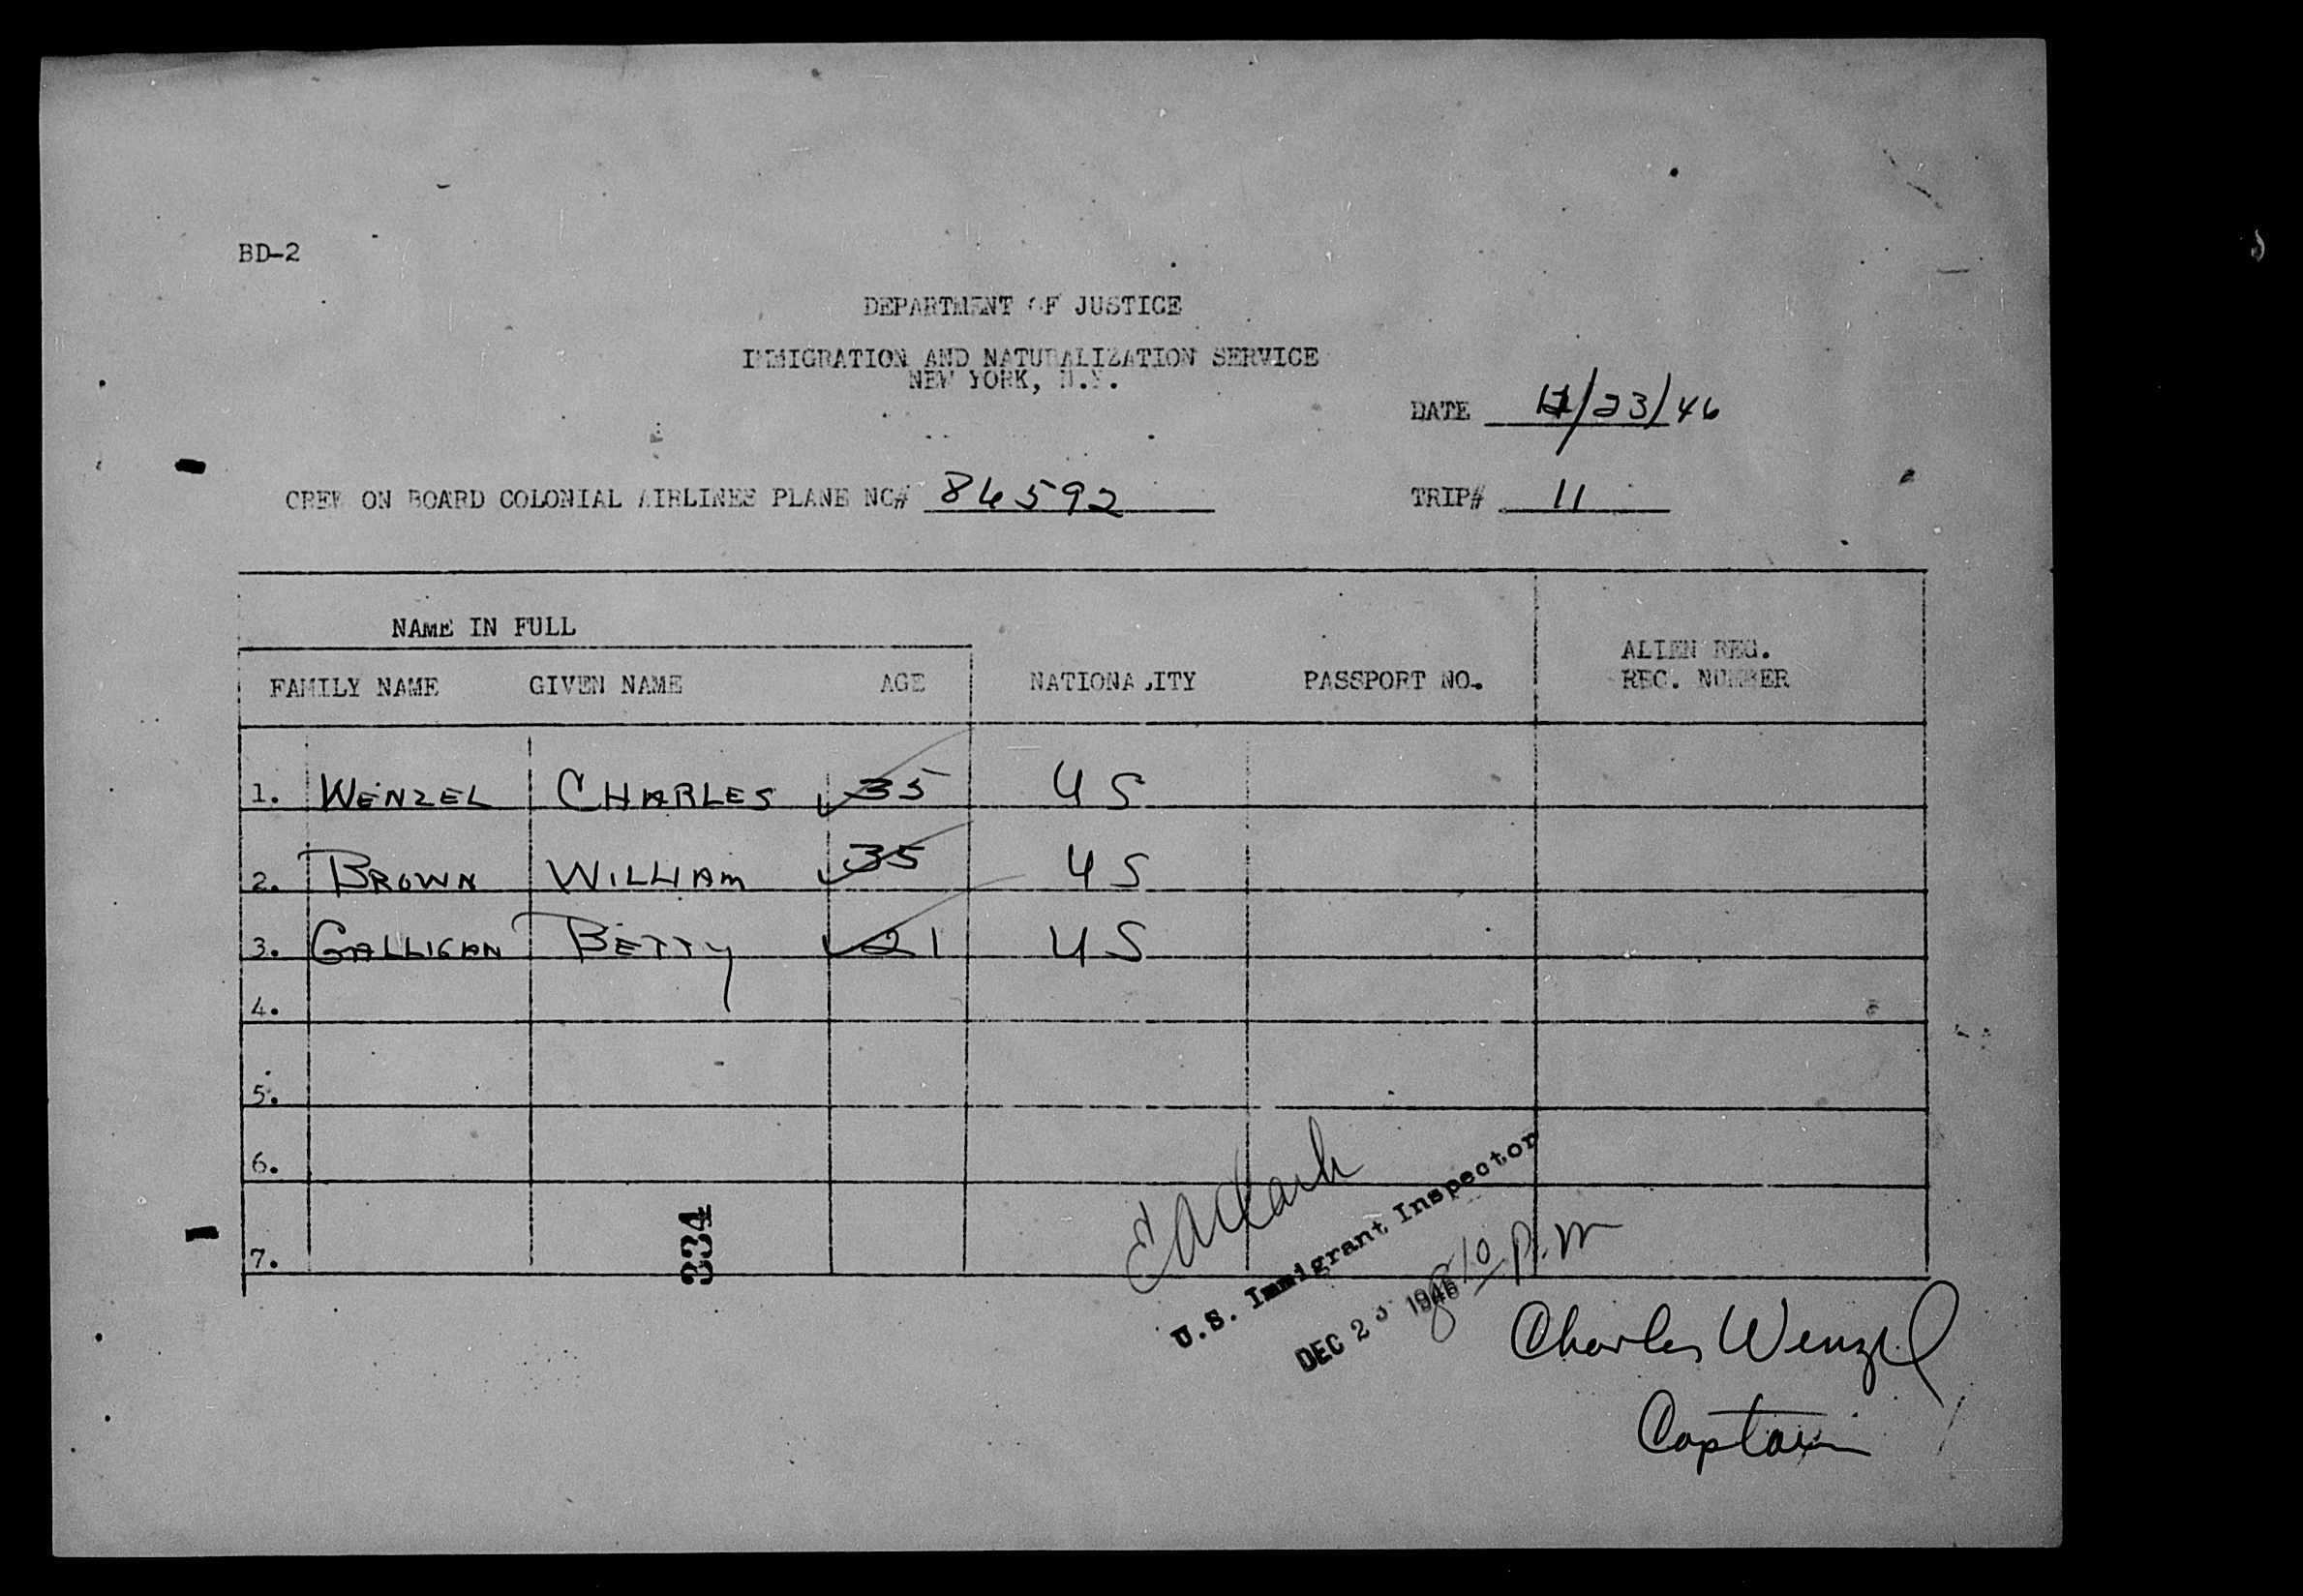 BD-2
DEPARTMENT OF JUSTICE
IMMIGRATION AND NATURALIZATION SERVICE
NEW YORK, N.Y.
DATE 12/23/46
CREW ON BOARD COLONIAL AIRLINES PLANE NC# 86592 TRIP# 11
NAME IN FULL
FAMILY NAME GIVEN NAME AGE NATIONALITY PASSPORT NO. ALIEN REG. REC. NUMBER
1. WENZEL CHARLES 35 US
2. BROWN WILLIAM 35 US
3. GALLIGAN BETTY 21 US
4.
5.
6.
7.
334
U.S. Immigrant Inspector
DEC 23 1946 8 10 P.M
Charles Wenzel
Captain